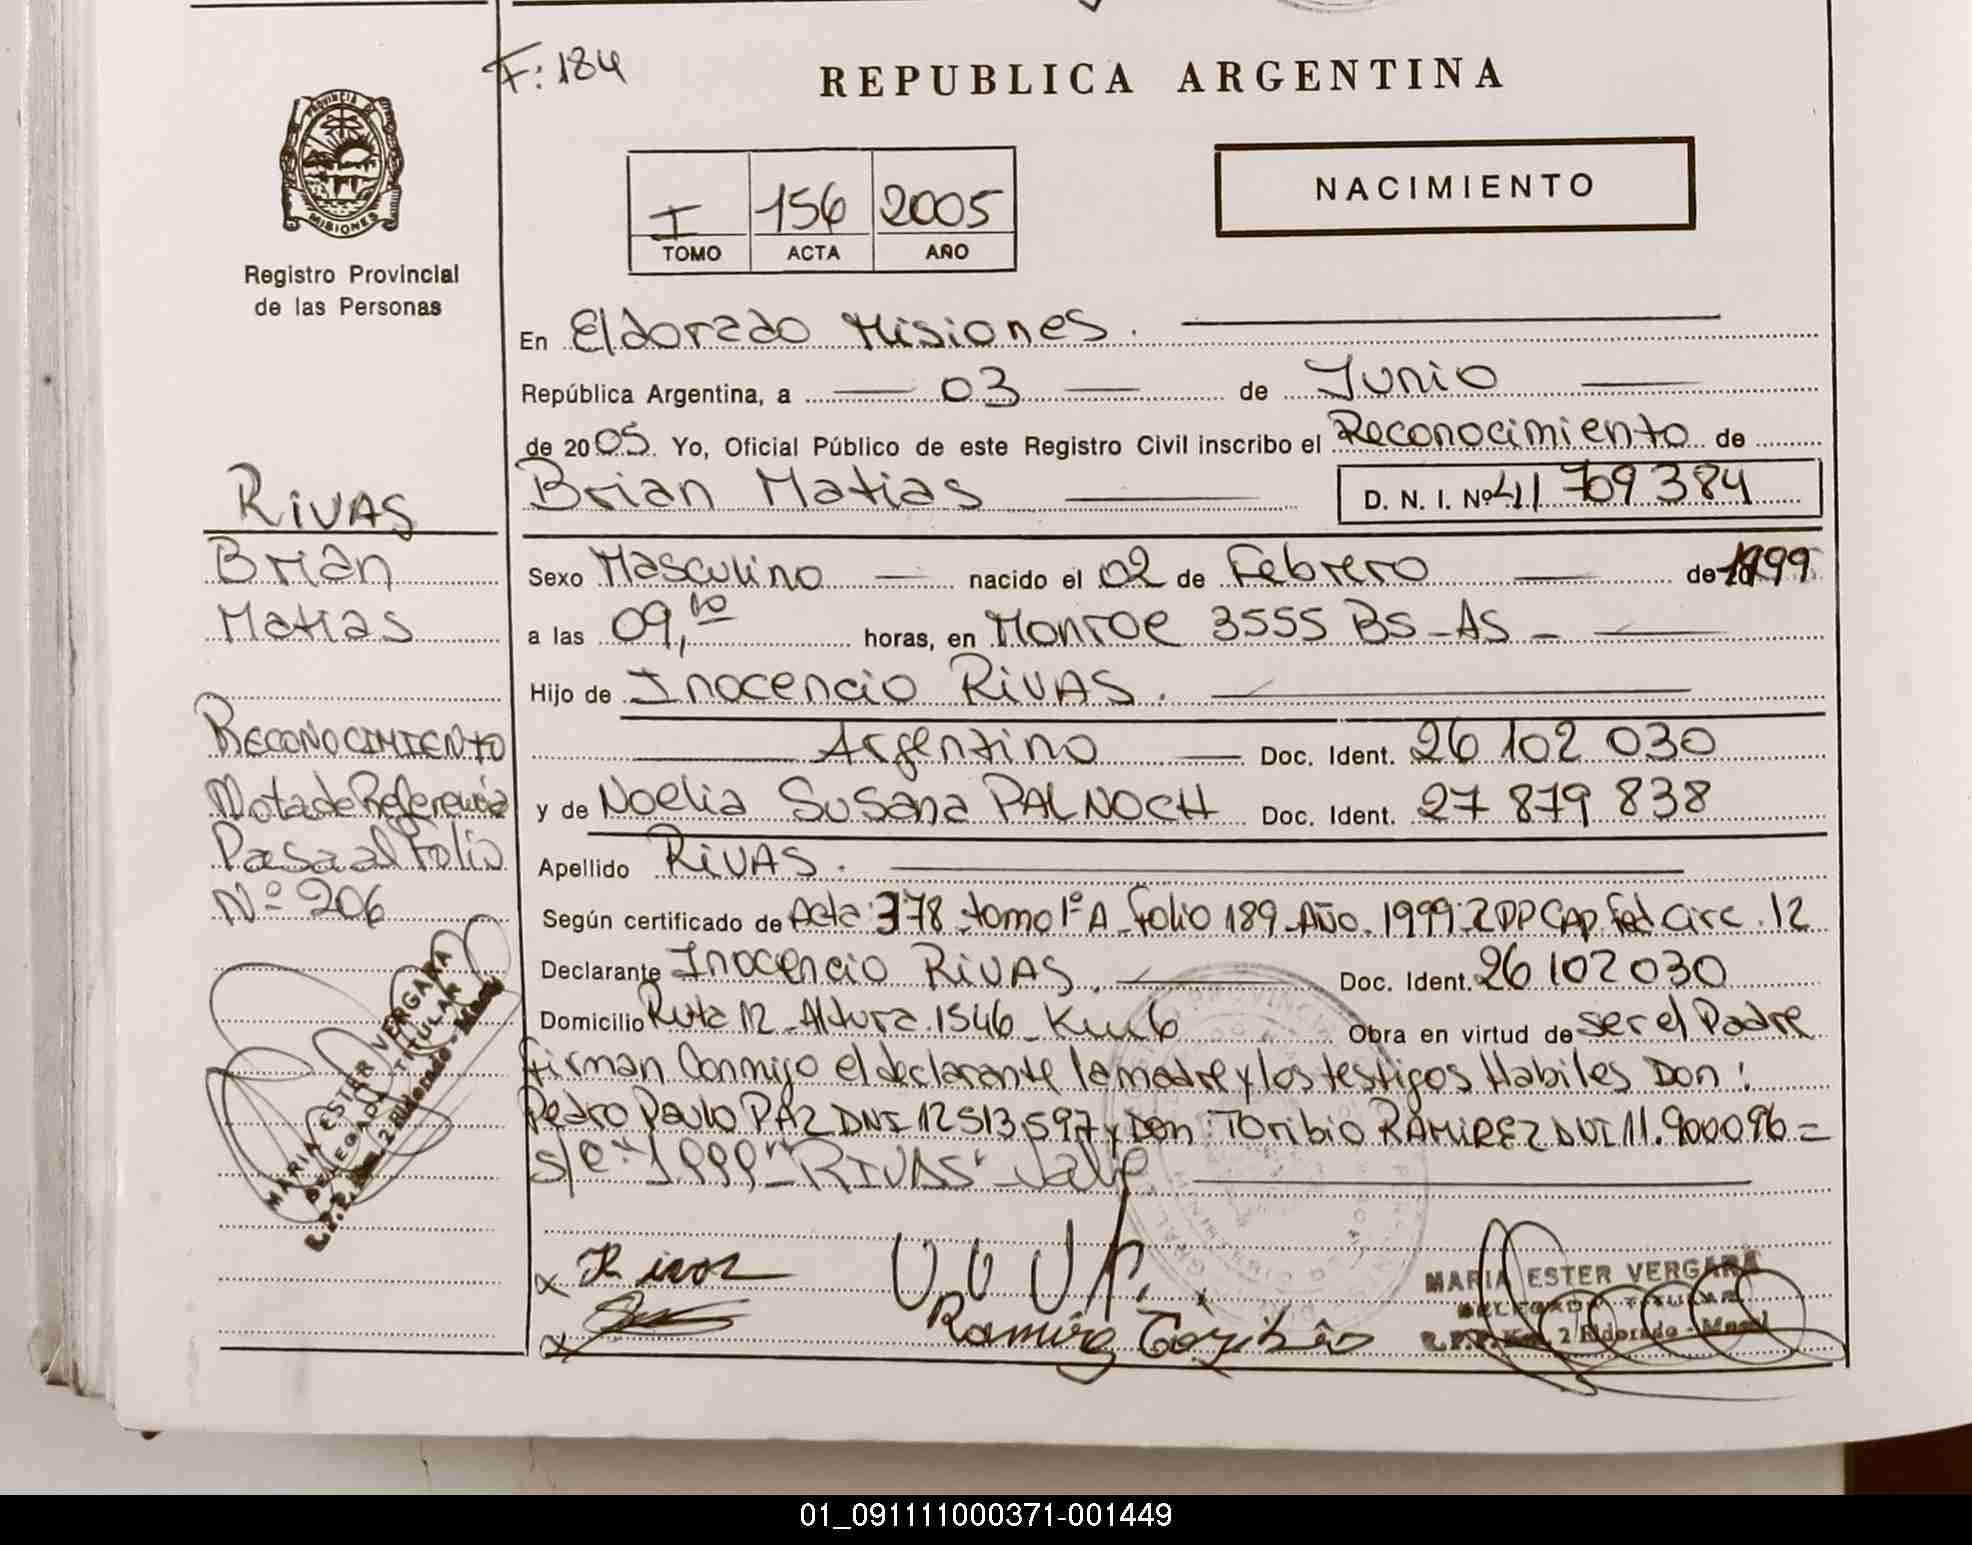 F: 184
REPUBLICA ARGENTINA
PROVINCIA DE
MISIONES
Registro Provincial
de las Personas
I 156 2005
TOMO ACTA AÑO
NACIMIENTO
En Eldorado Misiones.
República Argentina, a 03 de Junio
de 2005. Yo, Oficial Público de este Registro Civil inscribo el Reconocimiento de
Brian Matias D. N. I. Nº 41 709 384
Sexo Masculino nacido el 02 de Febrero de 1999
a las 09,10 horas, en Monroe 3555 Bs-As-
Hijo de Inocencio RIVAS.
Argentino Doc. Ident. 26 102 030
y de Noelia Susana PALNOCH Doc. Ident. 27 879 838
Apellido RIVAS.
Según certificado de Acta 378 tomo 1º A Folio 189 Año 1999 2DP CAP Fed Circ. 12
Declarante Inocencio RIVAS. Doc. Ident. 26 102 030
Domicilio Ruta 12 - Altura 1546 - Km 6 Obra en virtud de ser el Padre
firman Conmigo el declarante la madre y los testigos Habiles Don:
Pedro Paulo PAZ DNI 12 513 597 y Don: Toribio RAMIREZ DNI 11.900096=
s/e "1.999" "RIVAS" Vale
RIVAS
Brian
Matias
RECONOCIMIENTO
Nota de Referencia
Pasa al Folio
Nº 206
MARIA ESTER VERGARA
DELEGADA TITULAR
2 Eldorado - Mnes
Rivas
Ramirez Toribio
MARIA ESTER VERGARA
DELEGADA TITULAR
2 Eldorado - Mnes
01_091111000371-001449